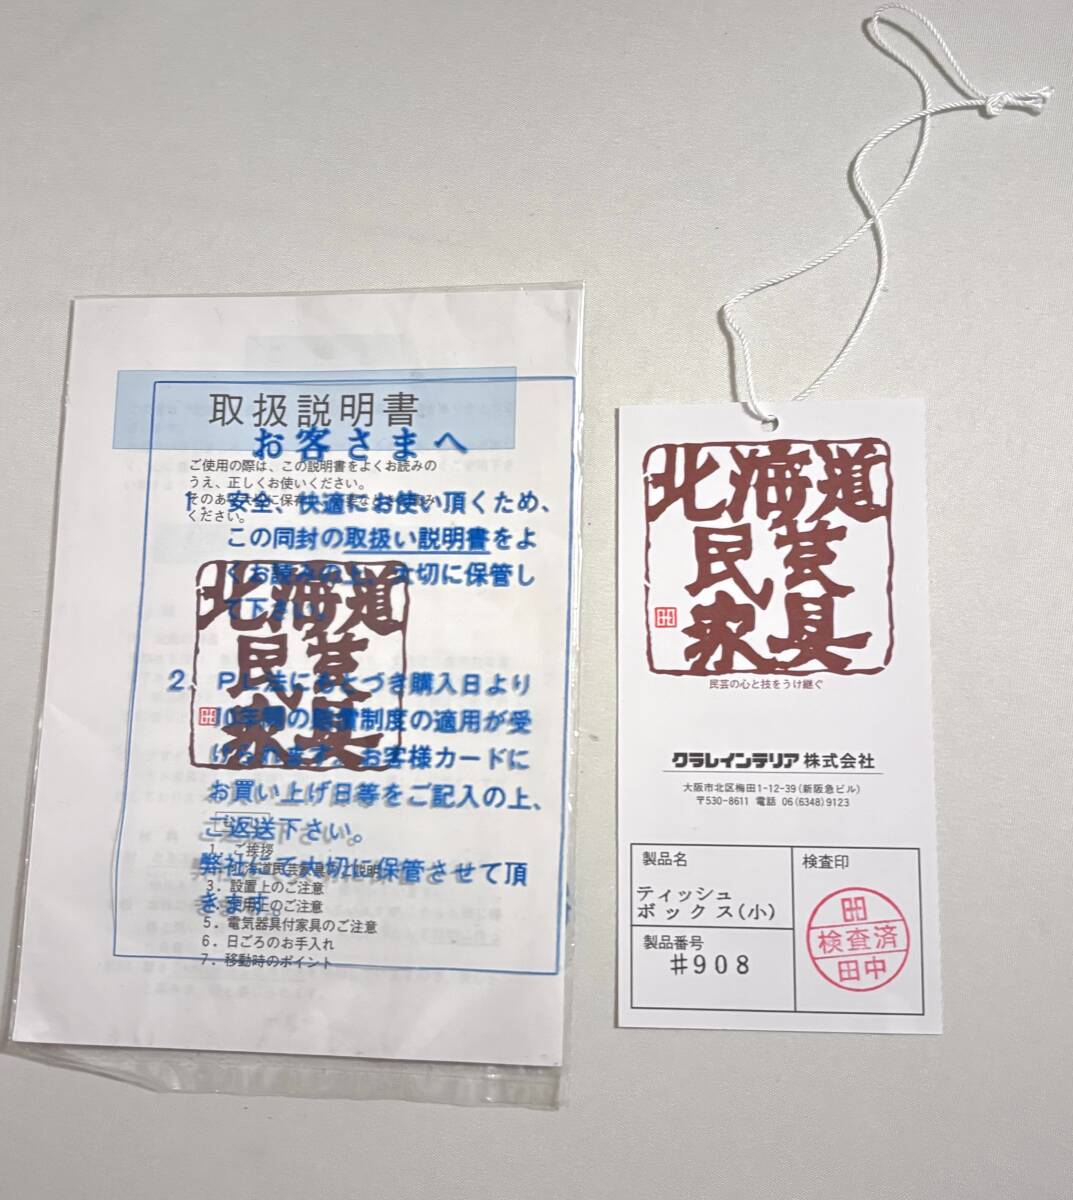 取扱説明書
お客さまへ
ご使用の際は、この説明書をよくお読みの
うえ、正しくお使いください。
ください。
1. 安全、快適にお使い頂くため、
この同封の取扱い説明書をよ
くお読みの上、大切に保管し
て下さい。
北海道
民芸
家具
2. PL法にもとづき購入日より
10年間の賠償制度の適用が受
けられます。お客様カードに
お買い上げ日等をご記入の上、
ご返送下さい。
弊社にて大切に保管させて頂
きます。
1. ご挨拶
3. 設置上のご注意
5. 電気器具付家具のご注意
6. 日ごろのお手入れ
7. 移動時のポイント
北海道
民芸
家具
民芸の心と技をうけ継ぐ
クラレインテリア株式会社
大阪市北区梅田1-12-39(新阪急ビル)
〒530-8611 電話 06(6348)9123
製品名
ティッシュ
ボックス(小)
製品番号
#908
検査印
検査済
田中